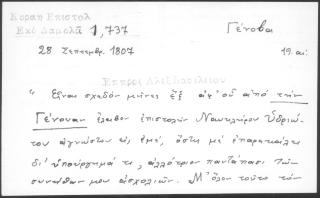 Κοραη Επιστολ
Εκδ Δαμαλᾶ 1,737
Γένοβα
28 Σεπτεμβρ. 1807
19. αι.
Επιρος Αλεξ Βασιλειου
"Εἶναι σχεδόν μῆνες ἓξ ἀφ' οὗ ἀπό τήν
Γένουαν ἔλαβον ἐπιστολήν Ναυκλήρου Ὑδριώ-
του ἀγνώστου εἰς ἐμέ, ὅστις μέ ἐπαρεκάλει
δι' ὑπούργημά τι, ἀλλότριον παντάπασι τῶν
συνηθῶν μου ἀσχολιῶν. Μ' ὅλον τοῦτο τόν